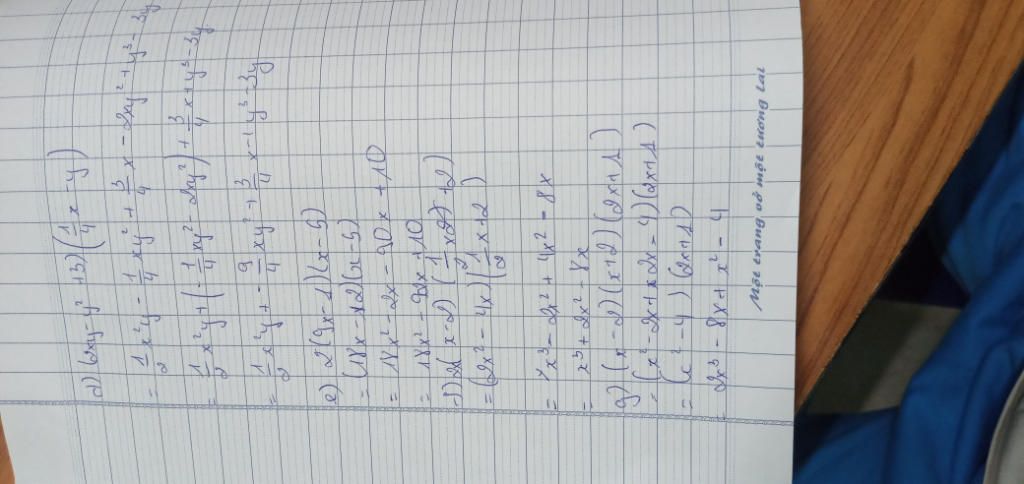 d) (2xy - y² + 3) (1/4 x - y)
= 1/2 x²y - 1/4 xy² + 3/4 x - 2xy² + y³ - 3y
= 1/2 x²y + (- 1/4 xy² - 2xy²) + 3/4 x + y³ - 3y
= 1/2 x²y + - 9/4 xy² + 3/4 x + y³ - 3y
e) 2(9x - 1)(x - 5)
= (18x - 2)(x - 5)
= 18x² - 2x - 90x + 10
= 18x² - 92x + 10
f) 2x(x - 2) (1/2 x + 2)
= (2x² - 4x) (1/2 x + 2)
= x³ - 2x² + 4x² - 8x
= x³ + 2x² - 8x
g) (x - 2)(x + 2)(2x + 1)
= (x² - 2x + 2x - 4)(2x + 1)
= (x² - 4)(2x + 1)
= 2x³ - 8x + x² - 4
Một trang vở một tương lai